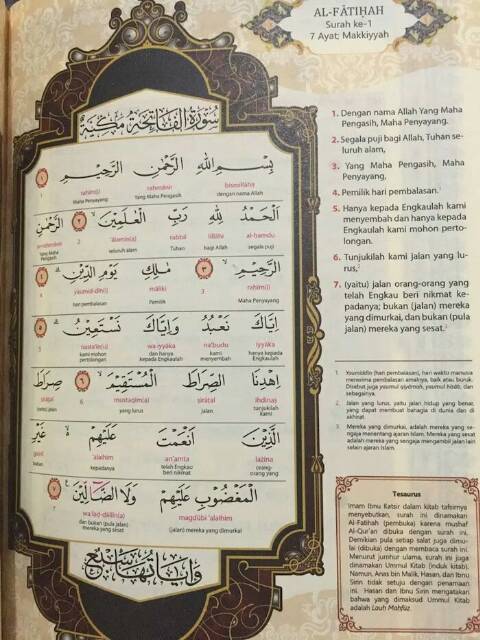 AL-FĀTIḤAH
Surah ke-1
7 Ayat; Makkiyyah
سُوْرَةُ الْفَاتِحَةِ مَكِّيَّةٌ
بِسْمِ اللّٰهِ الرَّحْمٰنِ الرَّحِيْمِ ١
bismillāhir raḥmānir raḥīm(i)
dengan nama Allah Yang Maha Pengasih Maha Penyayang 1
اَلْحَمْدُ لِلّٰهِ رَبِّ الْعٰلَمِيْنَ ٢ الرَّحْمٰنِ
al-ḥamdu lillāhi rabbil ‘ālamīn(a) ar-raḥmānir
segala puji bagi Allah Tuhan seluruh alam 2 Yang Maha Pengasih
الرَّحِيْمِ ٣ مٰلِكِ يَوْمِ الدِّيْنِ ٤
raḥīm(i) māliki yaumid-dīn(i)
Maha Penyayang 3 Pemilik hari pembalasan 4
اِيَّاكَ نَعْبُدُ وَاِيَّاكَ نَسْتَعِيْنُ ٥
iyyāka na‘budu wa iyyāka nasta‘īn(u)
hanya kepada Engkaulah kami menyembah dan hanya kepada Engkaulah kami mohon pertolongan 5
اِهْدِنَا الصِّرَاطَ الْمُسْتَقِيْمَ ٦ صِرَاطَ
ihdinaṣ ṣirāṭal mustaqīm(a) ṣirāṭal
tunjukilah kami jalan yang lurus 6 (yaitu) jalan
الَّذِيْنَ اَنْعَمْتَ عَلَيْهِمْ غَيْرِ
lażīna an‘amta ‘alaihim gairil
orang-orang yang telah Engkau beri nikmat kepadanya bukan
الْمَغْضُوْبِ عَلَيْهِمْ وَلَا الضَّاۤلِّيْنَ ٧
magḍūbi ‘alaihim wa laḍ-ḍāllīn(a)
(jalan) mereka yang dimurkai dan bukan (pula jalan) mereka yang sesat 7
وَاٰيَاتُهَا سَبْعٌ
1. Dengan nama Allah Yang Maha
Pengasih, Maha Penyayang.
2. Segala puji bagi Allah, Tuhan se-
luruh alam,
3. Yang Maha Pengasih, Maha
Penyayang,
4. Pemilik hari pembalasan.¹
5. Hanya kepada Engkaulah kami
menyembah dan hanya kepada
Engkaulah kami mohon perto-
longan.
6. Tunjukilah kami jalan yang lu-
rus,²
7. (yaitu) jalan orang-orang yang
telah Engkau beri nikmat ke-
padanya; bukan (jalan) mereka
yang dimurkai, dan bukan (pula
jalan) mereka yang sesat.³
1 Yaumiddīn (hari pembalasan), hari waktu manusia
menerima pembalasan amalnya, baik atau buruk.
Disebut juga yaumul qiyāmah, yaumul ḥisāb, dan
sebagainya.
2 Jalan yang lurus, yaitu jalan hidup yang benar,
yang dapat membuat bahagia di dunia dan di
akhirat.
3 Mereka yang dimurkai, adalah mereka yang se-
ngaja menentang ajaran Islam. Mereka yang sesat
adalah mereka yang sengaja mengambil jalan lain
selain ajaran Islam.
Tesaurus
Imam Ibnu Katsir dalam kitab tafsirnya
menyebutkan, surah ini dinamakan
Al-Fatihah (pembuka) karena mushaf
Al-Qur'an dibuka dengan surah ini.
Demikian pula setiap salat juga dimu-
lai (dibuka) dengan membaca surah ini.
Menurut jumhur ulama, surah ini juga
dinamakan Ummul Kitab (induk kitab).
Namun, Anas bin Malik, Hasan, dan Ibnu
Sirin tidak setuju dengan penamaan
ini. Hasan dan Ibnu Sirin mengatakan
bahwa yang dimaksud Ummul Kitab
adalah Lauh Mahfūẓ.